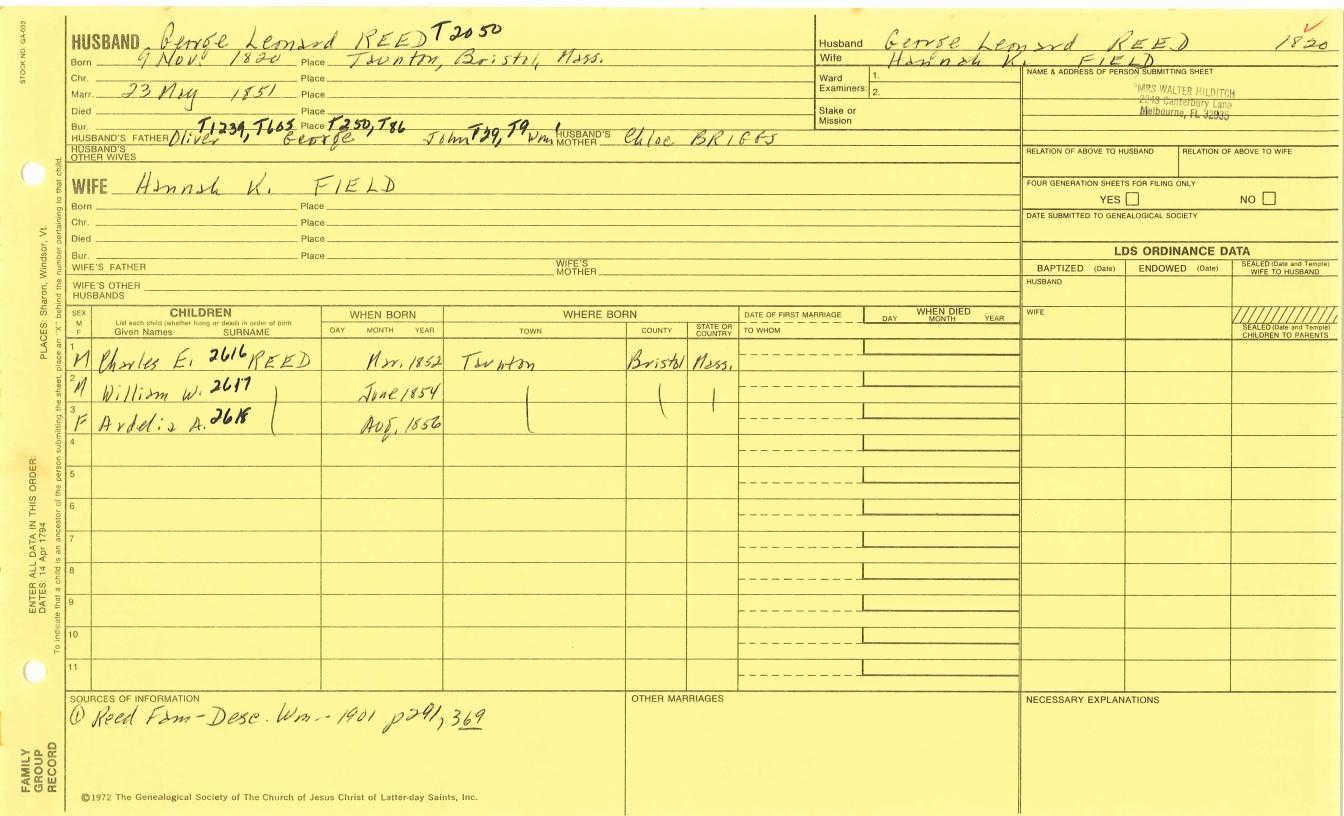 STOCK NO. GA-032
HUSBAND George Leonard REED T2050
Born 9 Nov. 1820 Place Taunton, Bristol, Mass.
Chr. Place
Marr. 23 May 1851 Place
Died Place
Bur. T1239, T605 Place T250, T86
HUSBAND'S FATHER Oliver George John T29, T9 Wm' HUSBAND'S MOTHER Chloe BRIGGS
HUSBAND'S OTHER WIVES
Husband George Leonard REED 1820
Wife Hannah K. FIELD
Ward Examiners: 1.
2.
Stake or Mission
NAME & ADDRESS OF PERSON SUBMITTING SHEET
MRS WALTER HILDITCH
2248 Canterbury Lane
Melbourne, FL 32935
RELATION OF ABOVE TO HUSBAND RELATION OF ABOVE TO WIFE
FOUR GENERATION SHEETS FOR FILING ONLY
YES NO
DATE SUBMITTED TO GENEALOGICAL SOCIETY
WIFE Hannah K. FIELD
Born Place
Chr. Place
Died Place
Bur. Place
WIFE'S FATHER WIFE'S MOTHER
WIFE'S OTHER HUSBANDS
LDS ORDINANCE DATA
BAPTIZED (Date) ENDOWED (Date) SEALED (Date and Temple) WIFE TO HUSBAND
HUSBAND
WIFE
SEALED (Date and Temple) CHILDREN TO PARENTS
SEX M F CHILDREN WHEN BORN WHERE BORN DATE OF FIRST MARRIAGE WHEN DIED
List each child (whether living or dead) in order of birth
Given Names SURNAME DAY MONTH YEAR TOWN COUNTY STATE OR COUNTRY TO WHOM DAY MONTH YEAR
1 M Charles E. 2616 REED Mar. 1852 Taunton Bristol Mass.
2 M William W. 2617 June 1854
3 F Ardelia A. 2618 Aug. 1856
4
5
6
7
8
9
10
11
SOURCES OF INFORMATION
① Reed Fam - Desc. Wm -- 1901 p291, 369
OTHER MARRIAGES
NECESSARY EXPLANATIONS
©1972 The Genealogical Society of The Church of Jesus Christ of Latter-day Saints, Inc.
FAMILY GROUP RECORD
ENTER ALL DATA IN THIS ORDER:
DATES: 14 Apr 1794 PLACES: Sharon, Windsor, Vt.
To indicate that a child is an ancestor of the person submitting the sheet, place an "X" behind the number pertaining to that child.